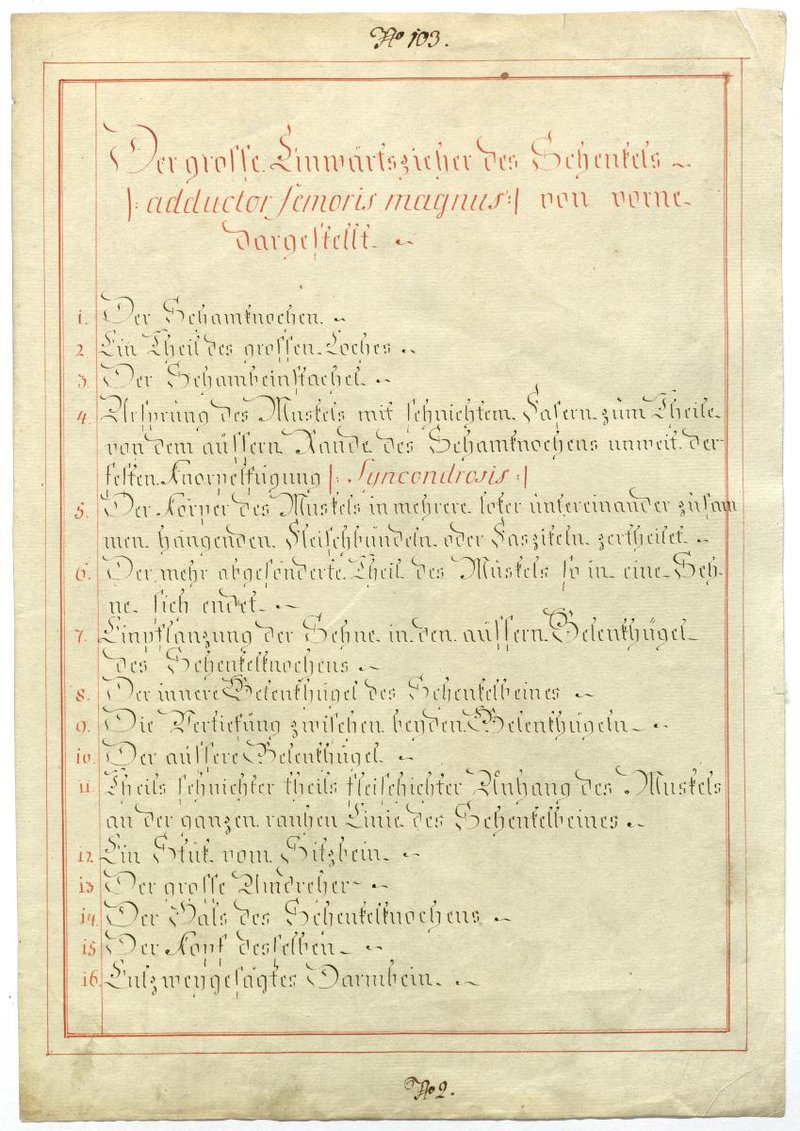 No 103.
Der grosse Einwärtszieher des Schenkels
|: adductor femoris magnus :| von vorne
dargestellt.
1. Der Schamknochen.
2 Ein Theil des grossen Loches
3 Der Schambeinstachel.
4. Ursprung des Muskels mit sehnichtem Fasern zum Theile
von dem äussern Rande des Schamknochens unweit der
festen Knorpelfügung |: Syncondrosis :|
5. Der Körper des Muskels in mehrere loker untereinander zusam
men hängenden Fleischbündeln oder Faszikeln zertheilet.
6. Der mehr abgesönderte Theil des Muskels so in eine Seh-
ne sich endet.
7. Einpflanzung der Sehne in den äussern Gelenkhügel
des Schenkelknochens.
8. Der innere Gelenkhügel des Schenkelbeines
9. Die Vertiefung zwischen beyden Gelenkhügeln
10. Der äussere Gelenkhügel
11. Theils sehnichter theils fleischichter Anhang des Muskels
an der ganzen rauhen Linie des Schenkelbeines.
12. Ein Stük vom Sitzbein.
13 Der grosse Umdreher
14. Der Hals des Schenkelknochens
15 Der Kopf desselben
16. Entzweygesägtes Darmbein.
No 2.